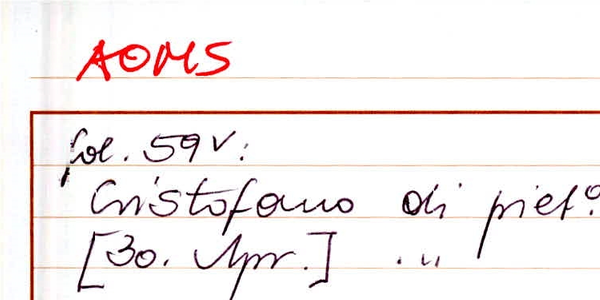 AOMS
fol. 59v:
Cristofano di piet°.
[30. Apr.] ...